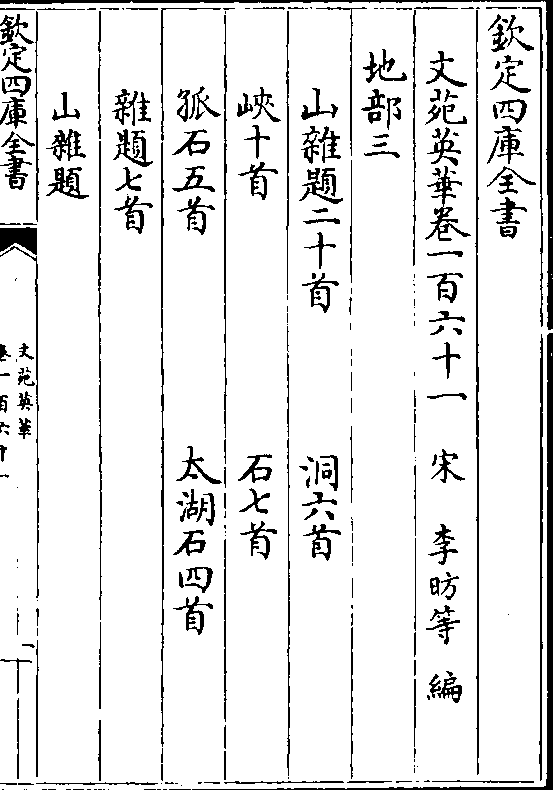 欽定四庫全書
文苑英華卷一百六十一 宋 李昉等 編
地部三
山雜題二十首 洞六首
峽十首 石七首
孤石五首 太湖石四首
雜題七首
山雜題
欽定四庫全書
文苑英華
卷一百六十一